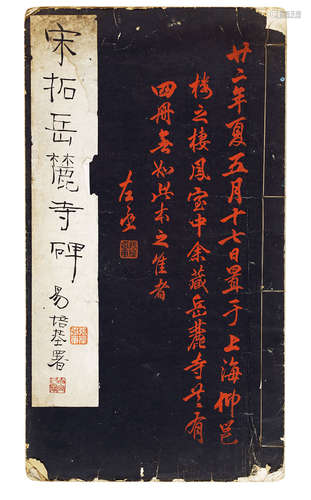 宋拓岳麓寺碑
易培基署
廿二年夏五月十七日置于上海仰邑
楼之棲凤室中余藏岳麓寺共有
四册无如此本之佳者
左丞